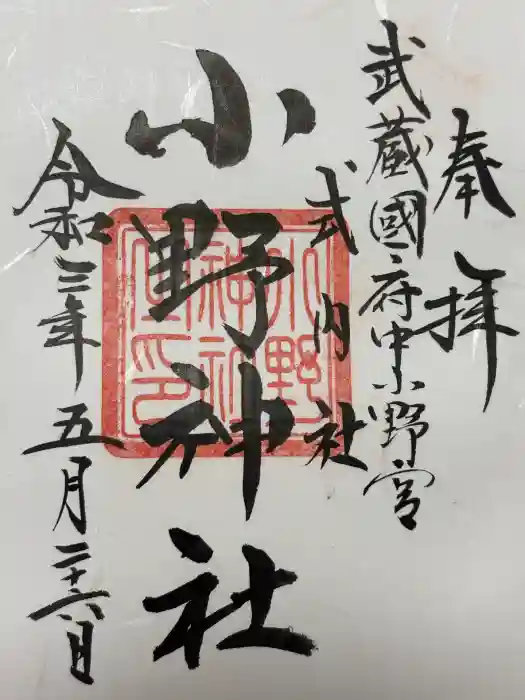 奉拝
武蔵國府中小野宮
式内社
小野神社
令和三年五月二十六日
小野
神社
印